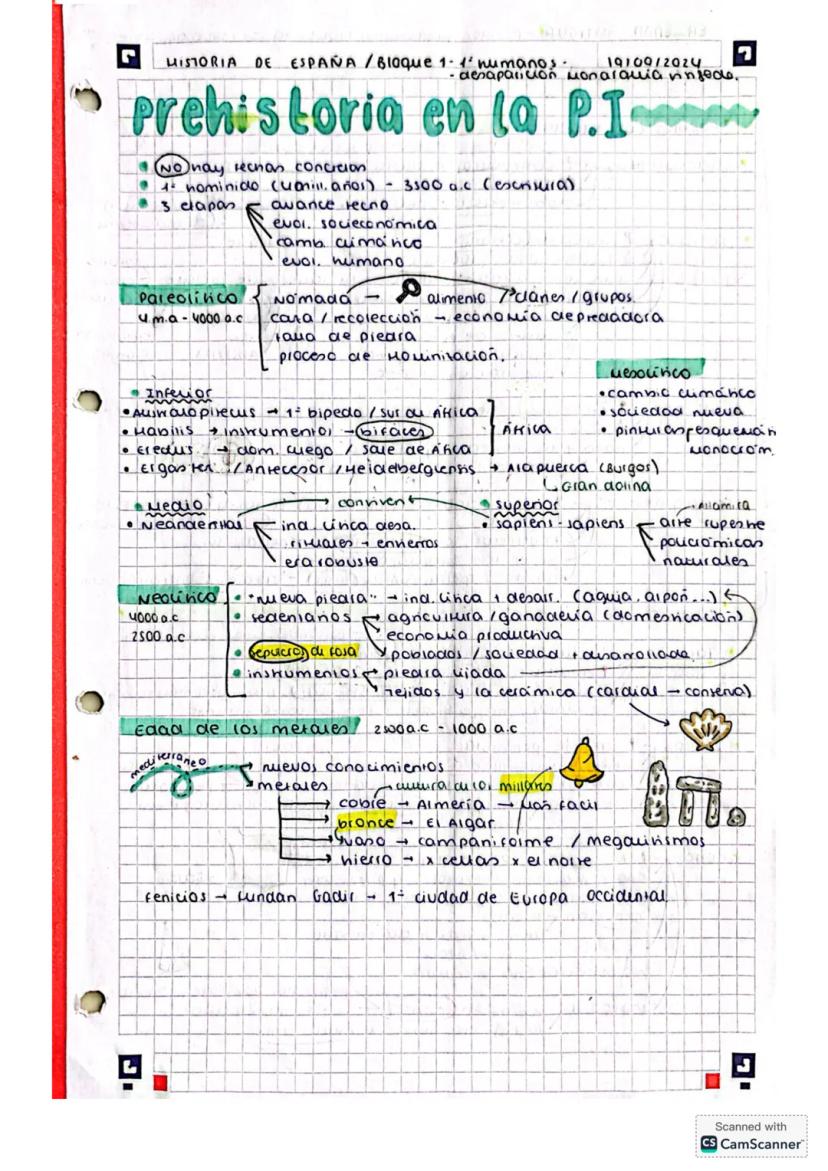 HISTORIA DE ESPAÑA / Bloque 1 - 1º humanos - 19/09/2024
- desaparición monarquía visigoda.
Prehistoria en la P.I
NO hay fechas concretas
1º hominido (4 mill. años) - 3500 a.c (escritura)
3 etapas avance tecno
evol. socieconómica
camb. climático
evol. humano
Paleolítico nómada → alimento / clanes / grupos.
4 m.a - 4000 a.c caza / recolección → economía depredadora
talla de piedra
proceso de hominización.
Mesolítico
Inferior • cambio climático
• Australopitecus → 1º bipedo / sur de África • sociedad nueva
• Habilis → instrumentos → bifaces África • pinturas esquemáti
• Erectus → dom. fuego / sale de África monocróm.
• Ergaster / Antecesor / Heidelbergensis → Atapuerca (Burgos)
Gran dolina
Medio conviven Superior Altamira
• Neandertal ind. lítica desa. • sapiens-sapiens arte rupestre
rituales → entierros policrómicas
era robusto naturales
Neolítico • "nueva piedra" → ind. lítica + desarr. (aguja, arpon...)
4000 a.c • sedentarios agricultura / ganadería (domesticación)
2500 a.c economía productiva
• sepulcros de fosa poblados / sociedad + desarrollada
• instrumentos piedra lijada
tejidos y la cerámica (cardial → conserva)
Edad de los metales 2500 a.c - 1000 a.c
mediterraneo nuevos conocimientos
metales cultura de los millares
cobre → Almería → más facil
bronce → El Algar
vaso → campaniforme / megalitismos
hierro → x celtas x el norte
Fenicios → fundan Gadir → 1ª ciudad de Europa occidental.
Scanned with
CS CamScanner